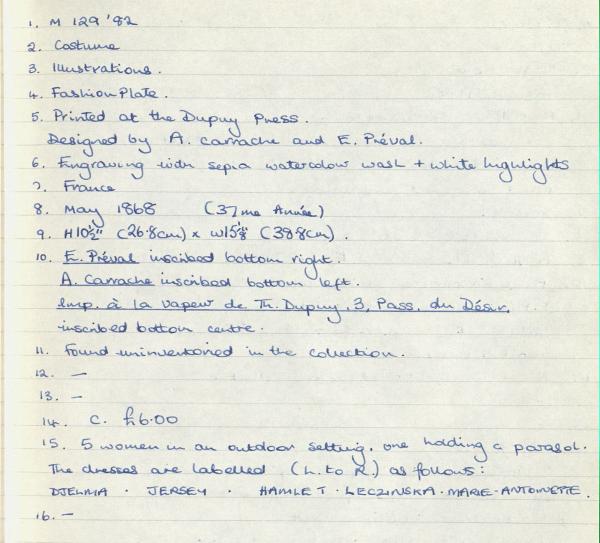 1. M 129 '82
2. Costume
3. Illustrations.
4. Fashion Plate.
5. Printed at the Dupuy Press.
Designed by A. Carrache and E. Préval.
6. Engraving with sepia watercolour wash + white highlights
7. France
8. May 1868 (37me Année)
9. H10½" (26.8cm) x W15⅛" (38.8cm).
10. E. Préval inscribed bottom right.
A. Carrache inscribed bottom left.
Imp. à la vapeur de Th. Dupuy, 3, Pass. du Désir,
inscribed bottom centre.
11. Found uninventoried in the collection.
12. —
13. —
14. C. £6.00
15. 5 women in an outdoor setting, one holding a parasol.
The dresses are labelled (L. to R.) as follows:
DJELMA · JERSEY · HAMLET · LECZINSKA · MARIE-ANTOINETTE.
16. —